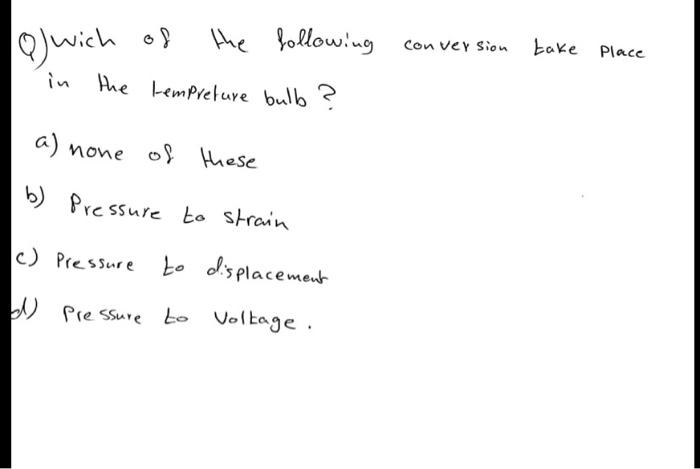 Q) Wich of the following conversion take place
in the tempreture bulb ?
a) none of these
b) Pressure to strain
c) Pressure to displacement
d) Pressure to Voltage .